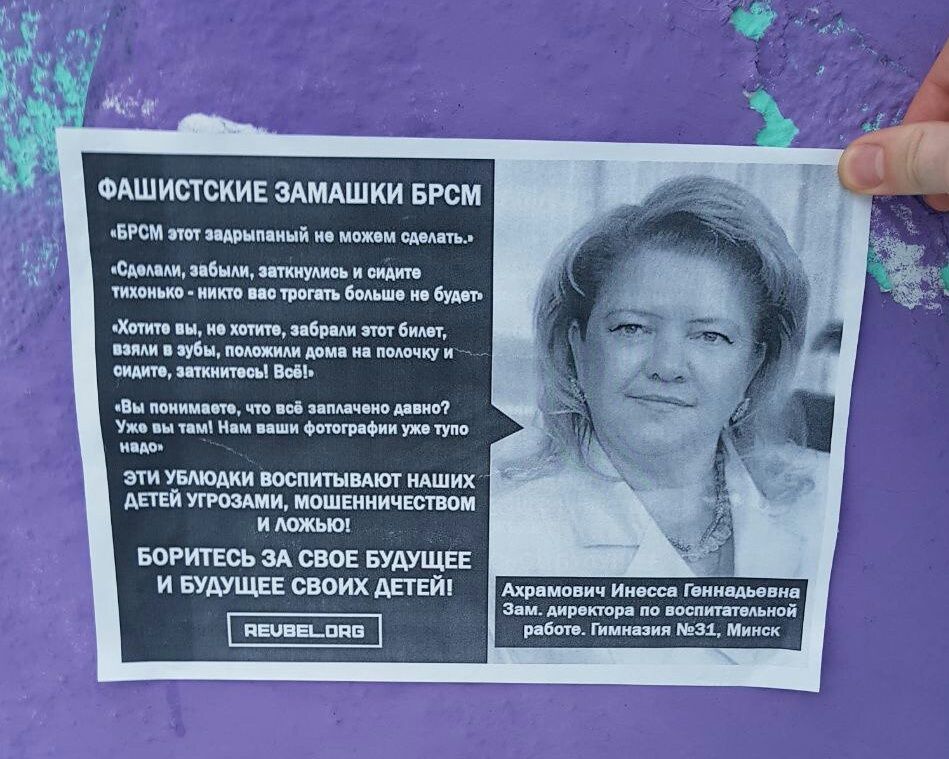 ФАШИСТСКИЕ ЗАМАШКИ БРСМ
«БРСМ этот задрыпаный не можем сделать.»
«Сделали, забыли, заткнулись и сидите
тихонько - никто вас трогать больше не будет»
«Хотите вы, не хотите, забрали этот билет,
взяли в зубы, положили дома на полочку и
сидите, заткнитесь! Всё!»
«Вы понимаете, что всё заплачено давно?
Уже вы там! Нам ваши фотографии уже тупо
надо»
ЭТИ УБЛЮДКИ ВОСПИТЫВАЮТ НАШИХ
ДЕТЕЙ УГРОЗАМИ, МОШЕННИЧЕСТВОМ
И ЛОЖЬЮ!
БОРИТЕСЬ ЗА СВОЕ БУДУЩЕЕ
И БУДУЩЕЕ СВОИХ ДЕТЕЙ!
REVBEL.ORG
Ахрамович Инесса Геннадьевна
Зам. директора по воспитательной
работе. Гимназия №31, Минск